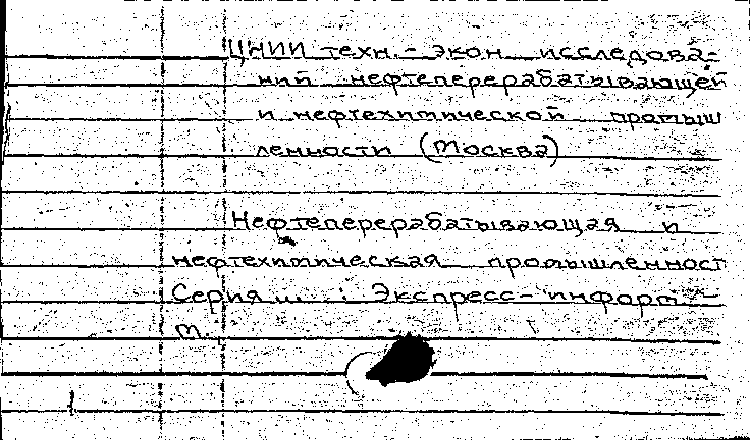 ЦНИИ техн.-экон исследова=
ний нефтеперерабатывающей
и нефтехимической промыш
ленности (Москва)
Нефтеперерабатывающая и
нефтехимическая промышленност
Серия ... : Экспресс-информ.-
м.